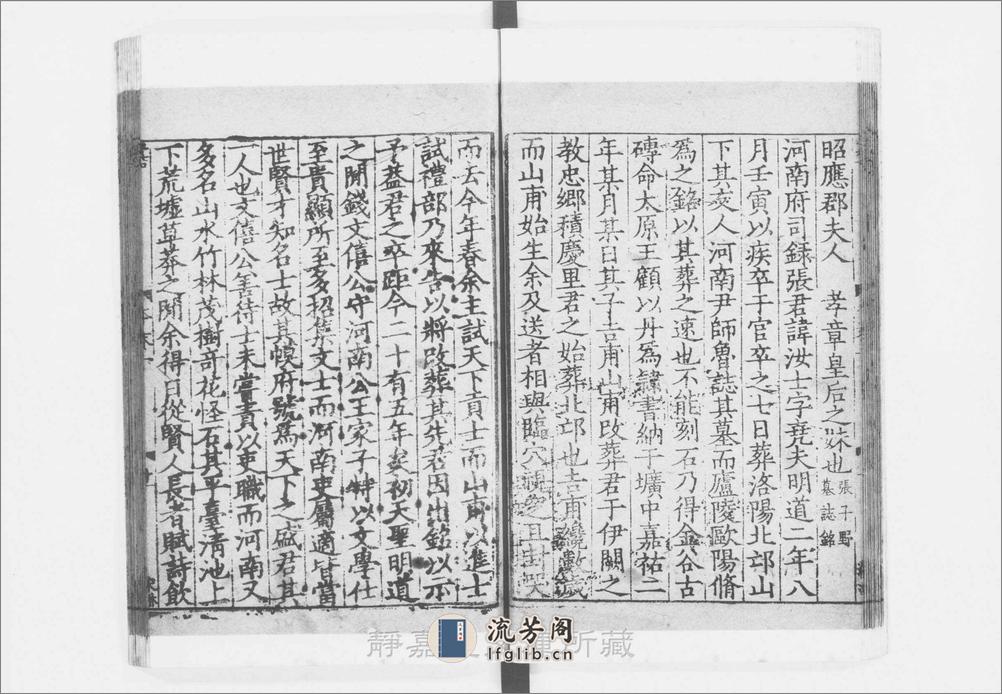 昭應郡夫人　孝章皇后之妹也張子野墓誌銘
河南府司錄張君諱汝士字堯夫明道二年八
月壬寅以疾卒于官卒之七日葬洛陽北邙山
下其友人河南尹師魯誌其墓而廬陵歐陽脩
為之銘以其葬之速也不能刻石乃得金谷古
磚命太原王顧以丹為隸書納于壙中嘉祐二
年某月某日其子吉甫山甫改葬君于伊闕之
教忠鄉積慶里君之始葬北邙也吉甫纔數歲
而山甫始生余及送者相與臨穴視窆且封哭
而去今年春余主試天下貢士而山甫以進士
試禮部乃來告以將改葬其先君因出銘以示
予蓋君之卒距今二十有五年矣初天聖明道
之間錢文僖公守河南公王家子特以文學仕
至貴顯所至多招集文士而河南吏屬適皆當
世賢才知名士故其幕府號為天下之盛君其
一人也文僖公善待士未嘗責以吏職而河南又
多名山水竹林茂樹奇花怪石其平臺清池上
下荒墟草莽之間余得日從賢人長者賦詩飲
靜嘉 所藏
流芳阁
lfglib.cn